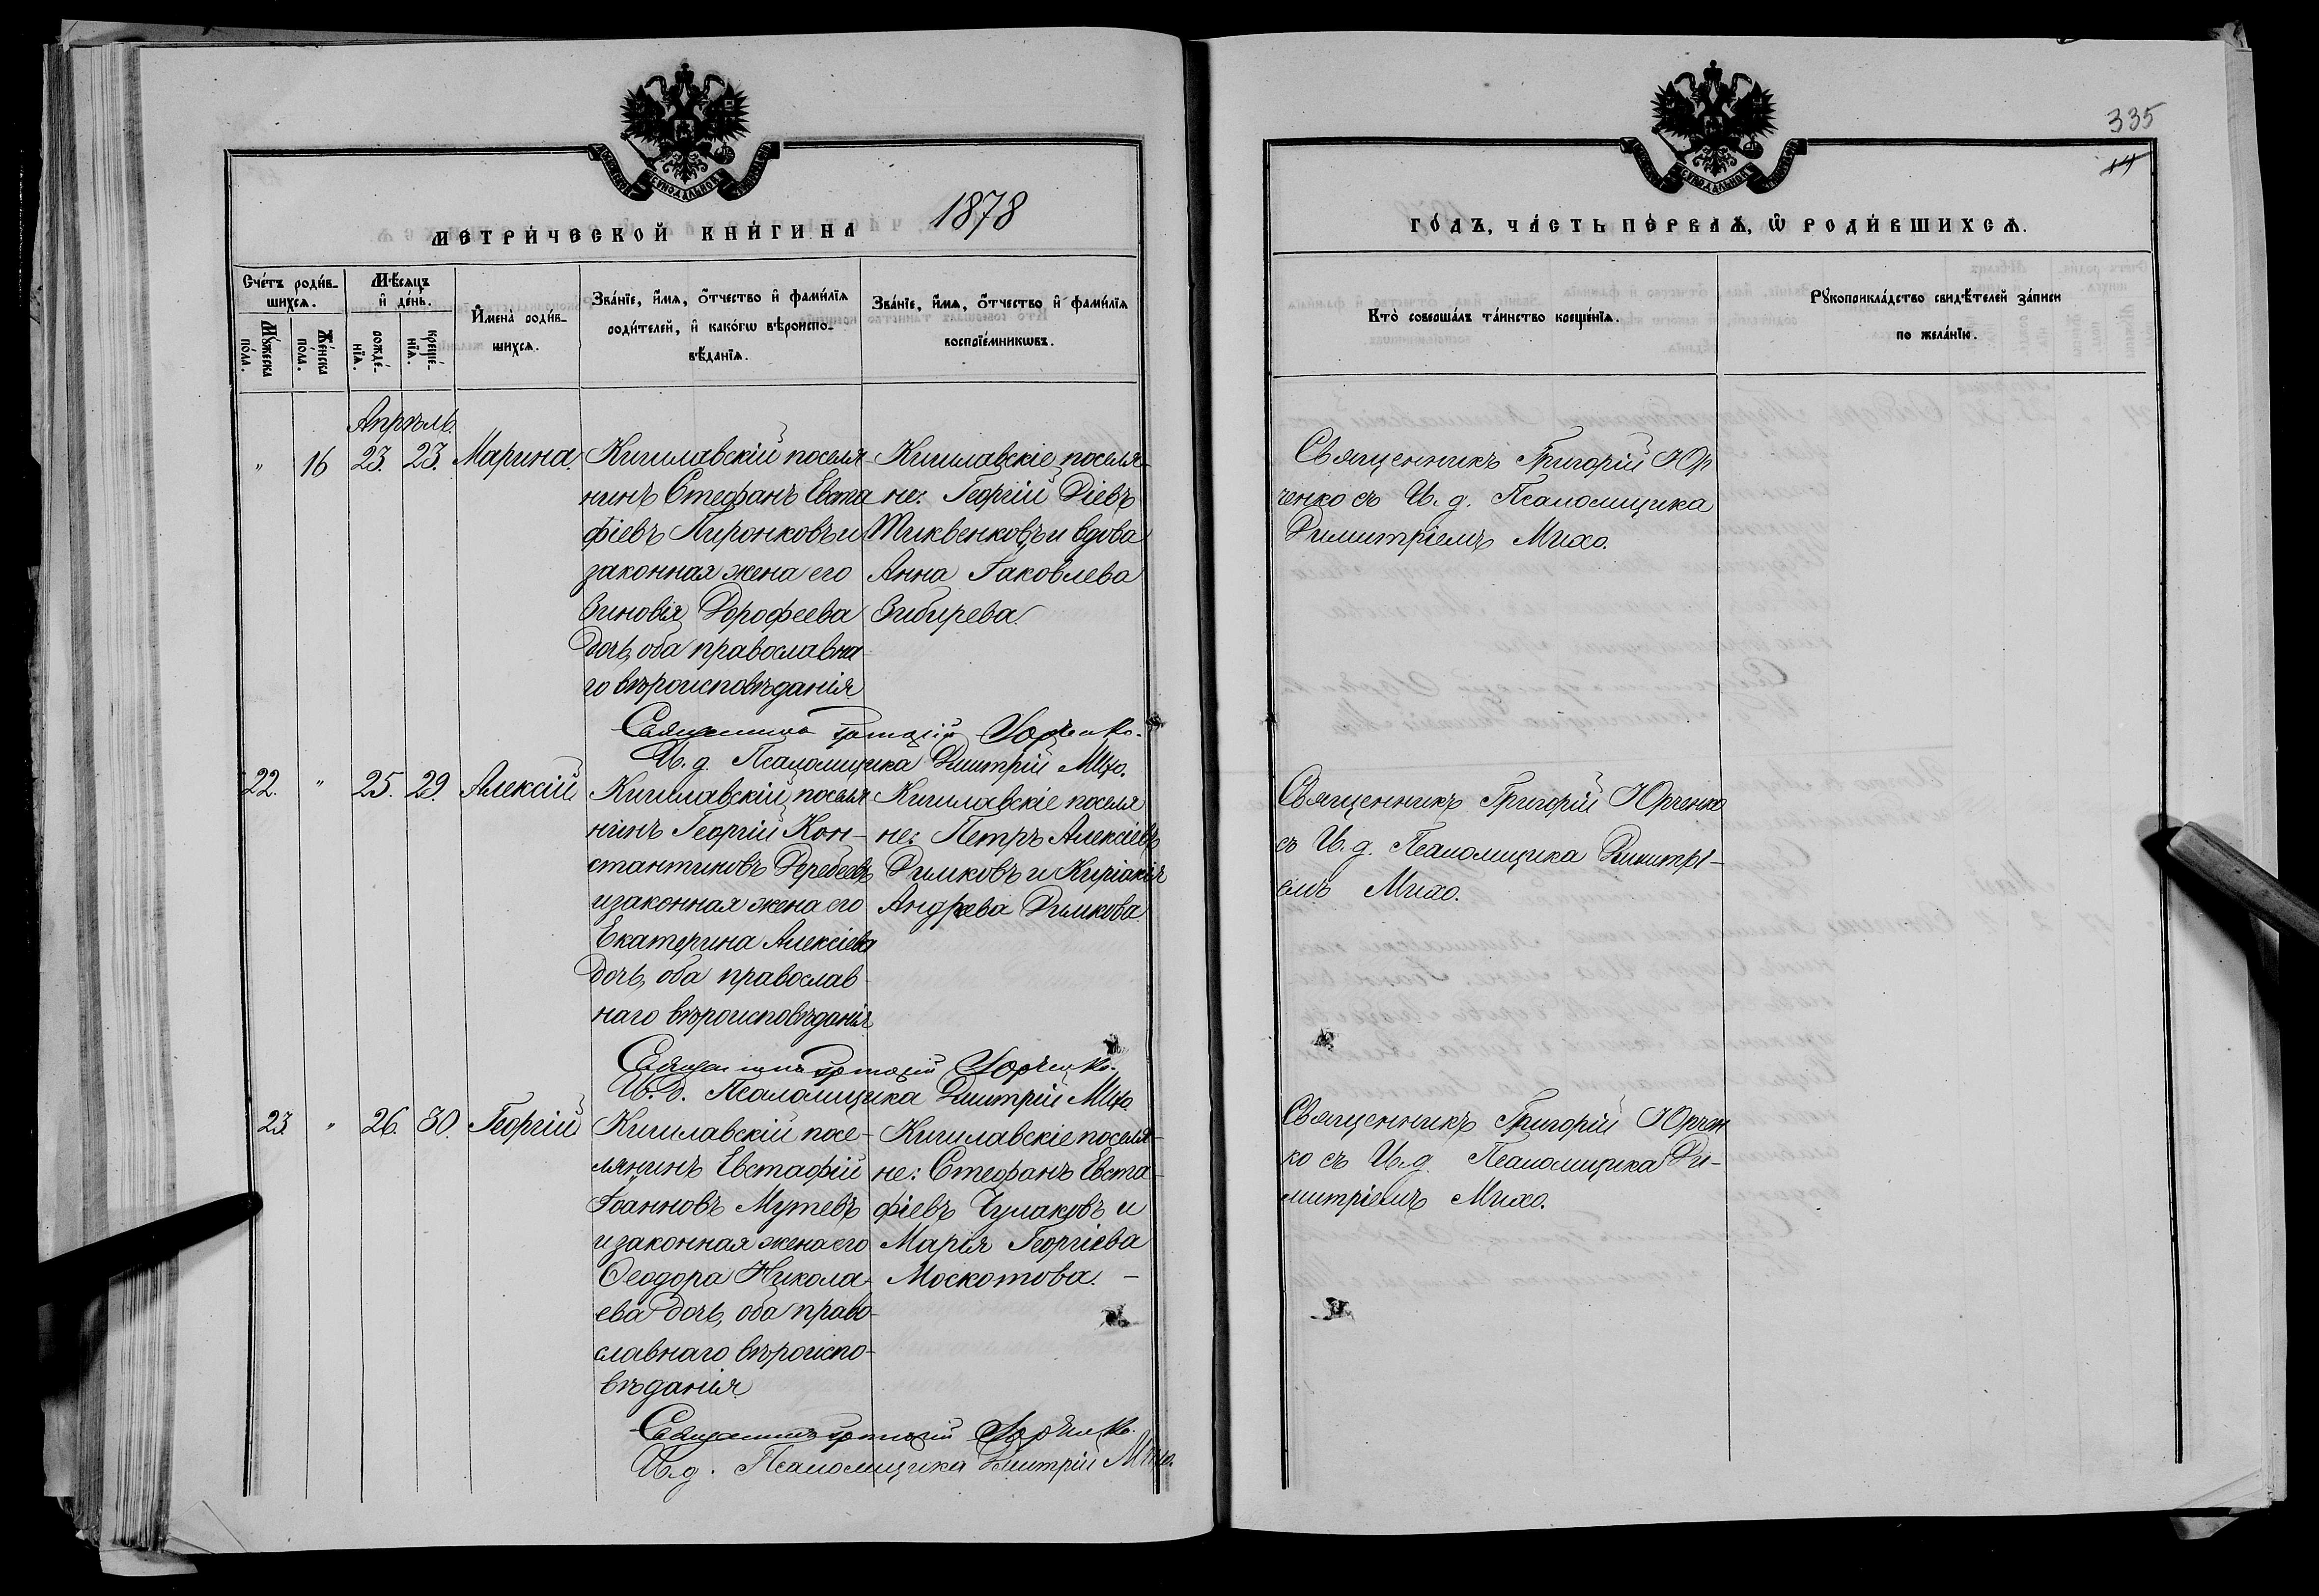 335
14
МЕТРИ́ЧЕСКОЙ КНИ́ГИ НА 1878
ГО́ДЪ, ЧА́СТЬ ПЕ́РВАѦ, Ѿ РОДИ́ВШИХСѦ.
Сче́тъ роди́в-
шихсѧ.
Мꙋ́жеска пола.
Же́нска пола.
Мѣ́сѧцъ
и҆ де́нь.
рожде́-
нїѧ.
креще́-
нїѧ.
И҆мена̀ роди́в-
шихсѧ.
Зва́нїе, и҆́мѧ, ѻ҆́тчество и҆ фами́лїѧ
роди́телей, и҆ како́гѡ вѣроиспо-
вѣ́данїѧ.
Зва́нїе, и҆́мѧ, ѻ҆́тчество и҆ фами́лїѧ
воспрїе́мникѡвъ.
Кто̀ соверша́лъ та́инство креще́нїѧ.
Рꙋкоприкла́дство свидѣ́телей за́писи
по жела́нїю.
Апрѣль.
" 16 23. 23. Марина.
Кишлавскій поселя-
нинъ Стефанъ Евста
фіевъ Пиронковъ и
законная жена его
Зиновія Дорофеева
дочь, оба православна-
го вѣроисповѣданія
Кишлавскіе поселя-
не: Георгій Діевъ
Тиквенковъ и вдова
Анна Іаковлева
Зибирева.
Священникъ Григорій Юр
ченко съ И. д. Псаломщика
Димитріемъ Михо.
Священникъ Григорій Юрченко.
И. д. Псаломщика Димитрій Михо.
22. " 25. 29. Алексій
Кишлавскій поселя
нинъ Георгій Кон-
стантиновъ Деребеевъ
и законная жена его
Екатерина Алексіева
дочь, оба православ
наго вѣроисповѣданія
Кишлавскіе поселя
не: Петръ Алексіевъ
Димковъ и Киріакія
Андреева Димкова
Священникъ Григорій Юрченко
съ И. д. Псаломщика Димитрі-
емъ Михо.
Священникъ Григорій Юрченко.
И. д. Псаломщика Димитрій Михо.
23. " 26. 30. Георгій
Кишлавскій посе-
лянинъ Евстафій
Іоанновъ Мутевъ
и законная жена его
Ѳеодора Никола-
ева дочь, оба право-
славнаго вѣроиспо-
вѣданія
Кишлавскіе поселя-
не: Стефанъ Евста-
фіевъ Чулаковъ и
Марія Георгіева
Москотова. -
Священникъ Григорій Юрчен
ко съ И. д. Псаломщика Ди-
митріемъ Михо.
Священникъ Григорій Юрченко.
И. д. Псаломщика Димитрій Михо.